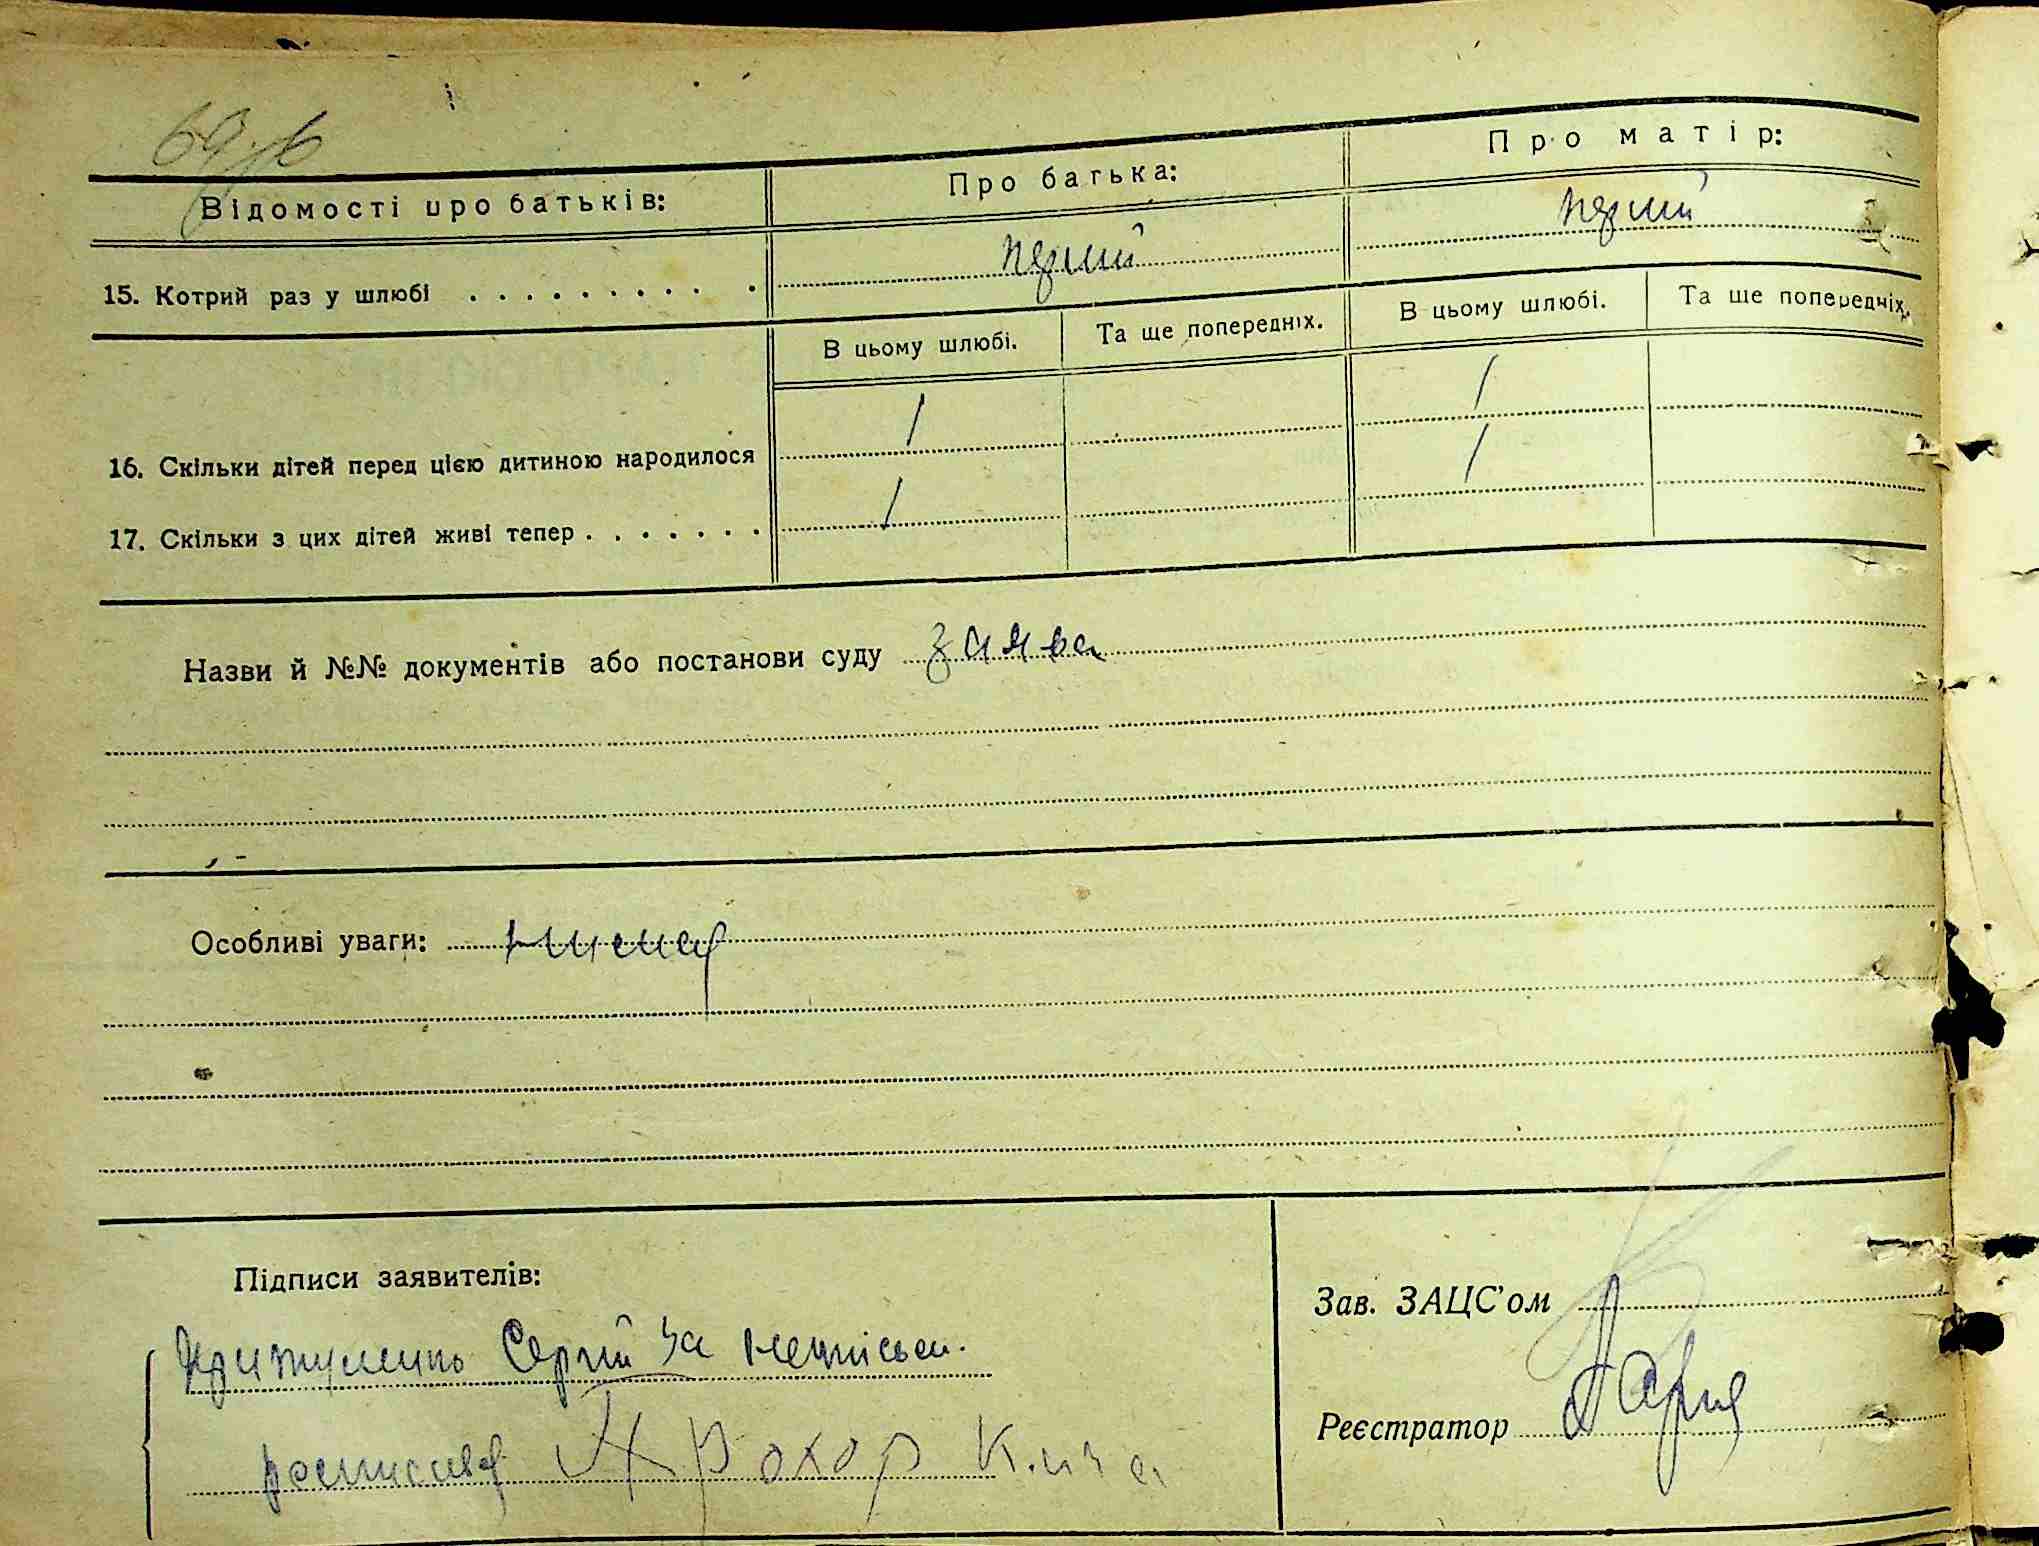 69 зв
Відомості про батьків: Про батька: Про матір:
15. Котрий раз у шлюбі . . . . . . . . . . перший перший
В цьому шлюбі. Та ще попередніх. В цьому шлюбі. Та ще попередніх.
16. Скільки дітей перед цією дитиною народилося 1 1
17. Скільки з цих дітей живі тепер . . . . . . . 1 1
Назви й №№ документів або постанови суду заява
Особливі уваги:
Підписи заявителів:
Сергій за неписьм.
росписався Прохор
Зав. ЗАЦС'ом
Реєстратор